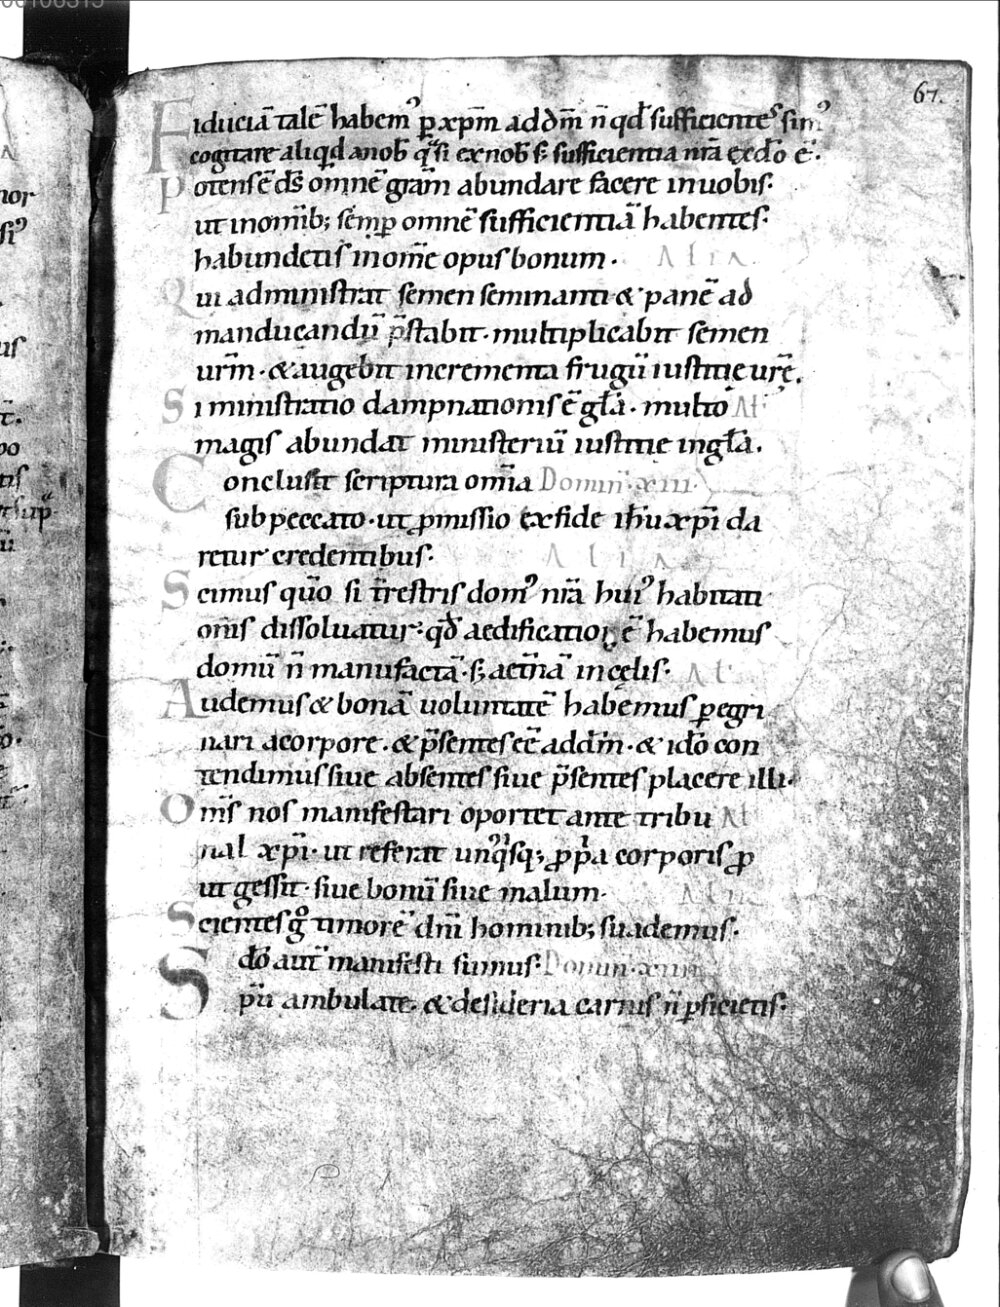 67.
Fiduciā talē habem᾽ ꝑ xp̄m ad dm̄ n̄ qđ sufficientes sim᾽
cogitare aliqđ a nob̄ qͣsi ex nob̄ s; sufficientia nr̄a ex dō ē.
Potens ē ds̄ omnē grām abundare facere in uobis.
ut in om̄ib; semꝑ omnē sufficientiā habentes.
habundetis in om̄e opus bonum. Alia
Qui administrat semen seminanti & panē ad
manducandū p̄stabit. multiplicabit semen
urm̄. & augebit incrementa frugū iustitię urę̄.
Si ministratio dampnationis ē gl̄a. multo Al
magis abundat ministeriū iustitie in gl̄a.
Conclusit scriptura om̄ia Domin̄. xiii.
sub peccato. ut ꝓmissio ex fide ih̄u xp̄i da
retur credentibus. Alia
Scimus quō si tr̄estris dom᾽ nr̄a hui᾽ habitati
onis dissoluatur. qđ aedificationē habemus
domū n̄ manufactā. s; aet̄nā in cęlis. Al
Audemus & bonā uoluntatē habemus ꝑegri
nari a corpore. & p̄sentes eē ad dm̄. & idō con
tendimus siue absentes siue p̄sentes placere illi.
Om̄s nos manifestari oportet ante tribu Al
nal xp̄i. ut referat un᾽qͥsq; ꝓpͥa corporis ꝓ
ut gessit. siue bonū siue malum. Alia
Scientes gͦ timorē dn̄i hominib; suademus.
dō aut̄ manifesti sumus. Domin̄. xiiii
Spū ambulate. & desideria carnis n̄ ꝑficietis.